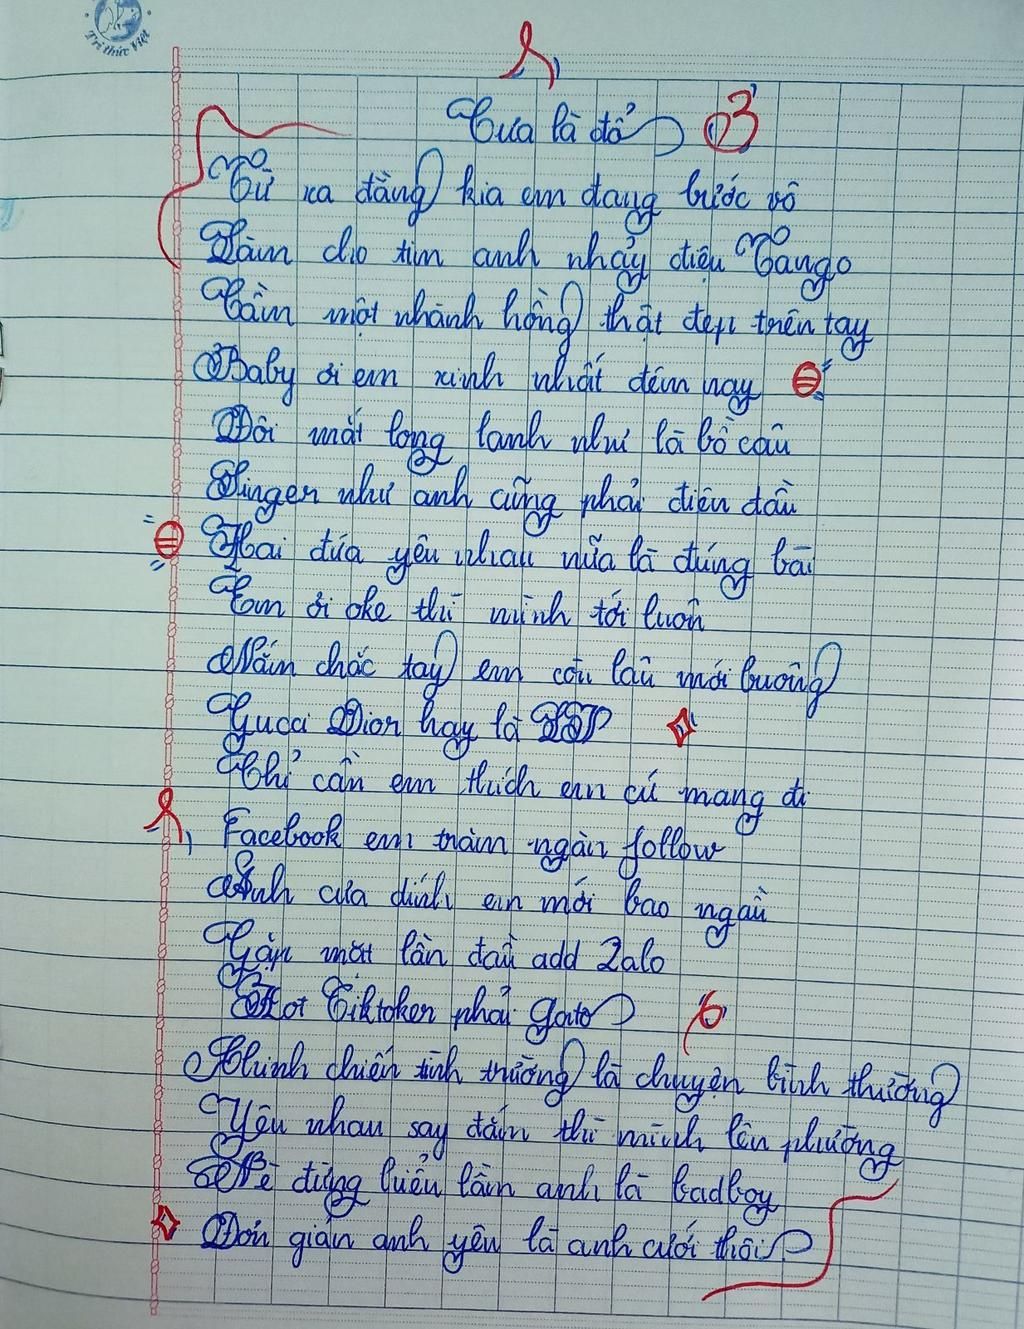 Trí thức Việt
Cưa là đổ
Từ xa đằng kia em đang bước vô
Làm cho tim anh nhảy điệu Tango
Cầm một nhành hồng thật đẹp trên tay
Baby ơi em xinh nhất đêm nay
Đôi mắt long lanh như là bồ câu
Singer như anh cũng phải điên đầu
Hai đứa yêu nhau nữa là đúng bài
Em ơi oke thì mình tới luôn
Nắm chắc tay em còn lâu mới buông
Gucci Dior hay là
Chỉ cần em thích em cứ mang đi
Facebook em trăm ngàn follow
Anh cưa dính em mới bao ngầu
Gặp mặt lần đầu add Zalo
Hot Tiktoker phải gato
Chinh chiến tình trường là chuyện bình thường
Yêu nhau say đắm thì mình lên phường
Bé đừng hiểu lầm anh là badboy
Đơn giản anh yêu là anh cưới thôi